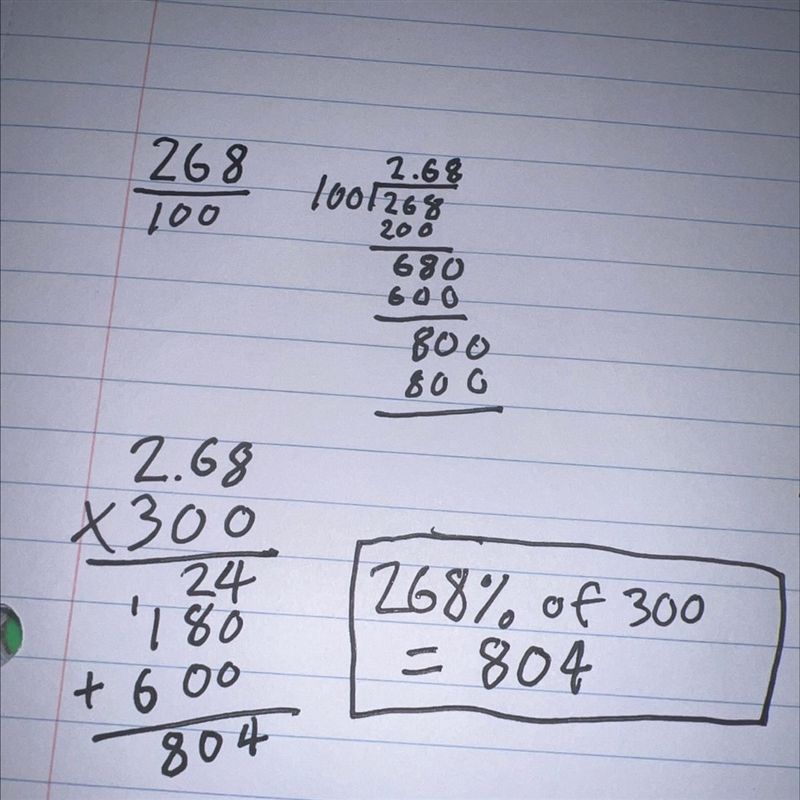 268
100
2.68
100 268
200
680
600
800
800
2.68
×300
24
1
180
+ 600
804
268% of 300
= 804